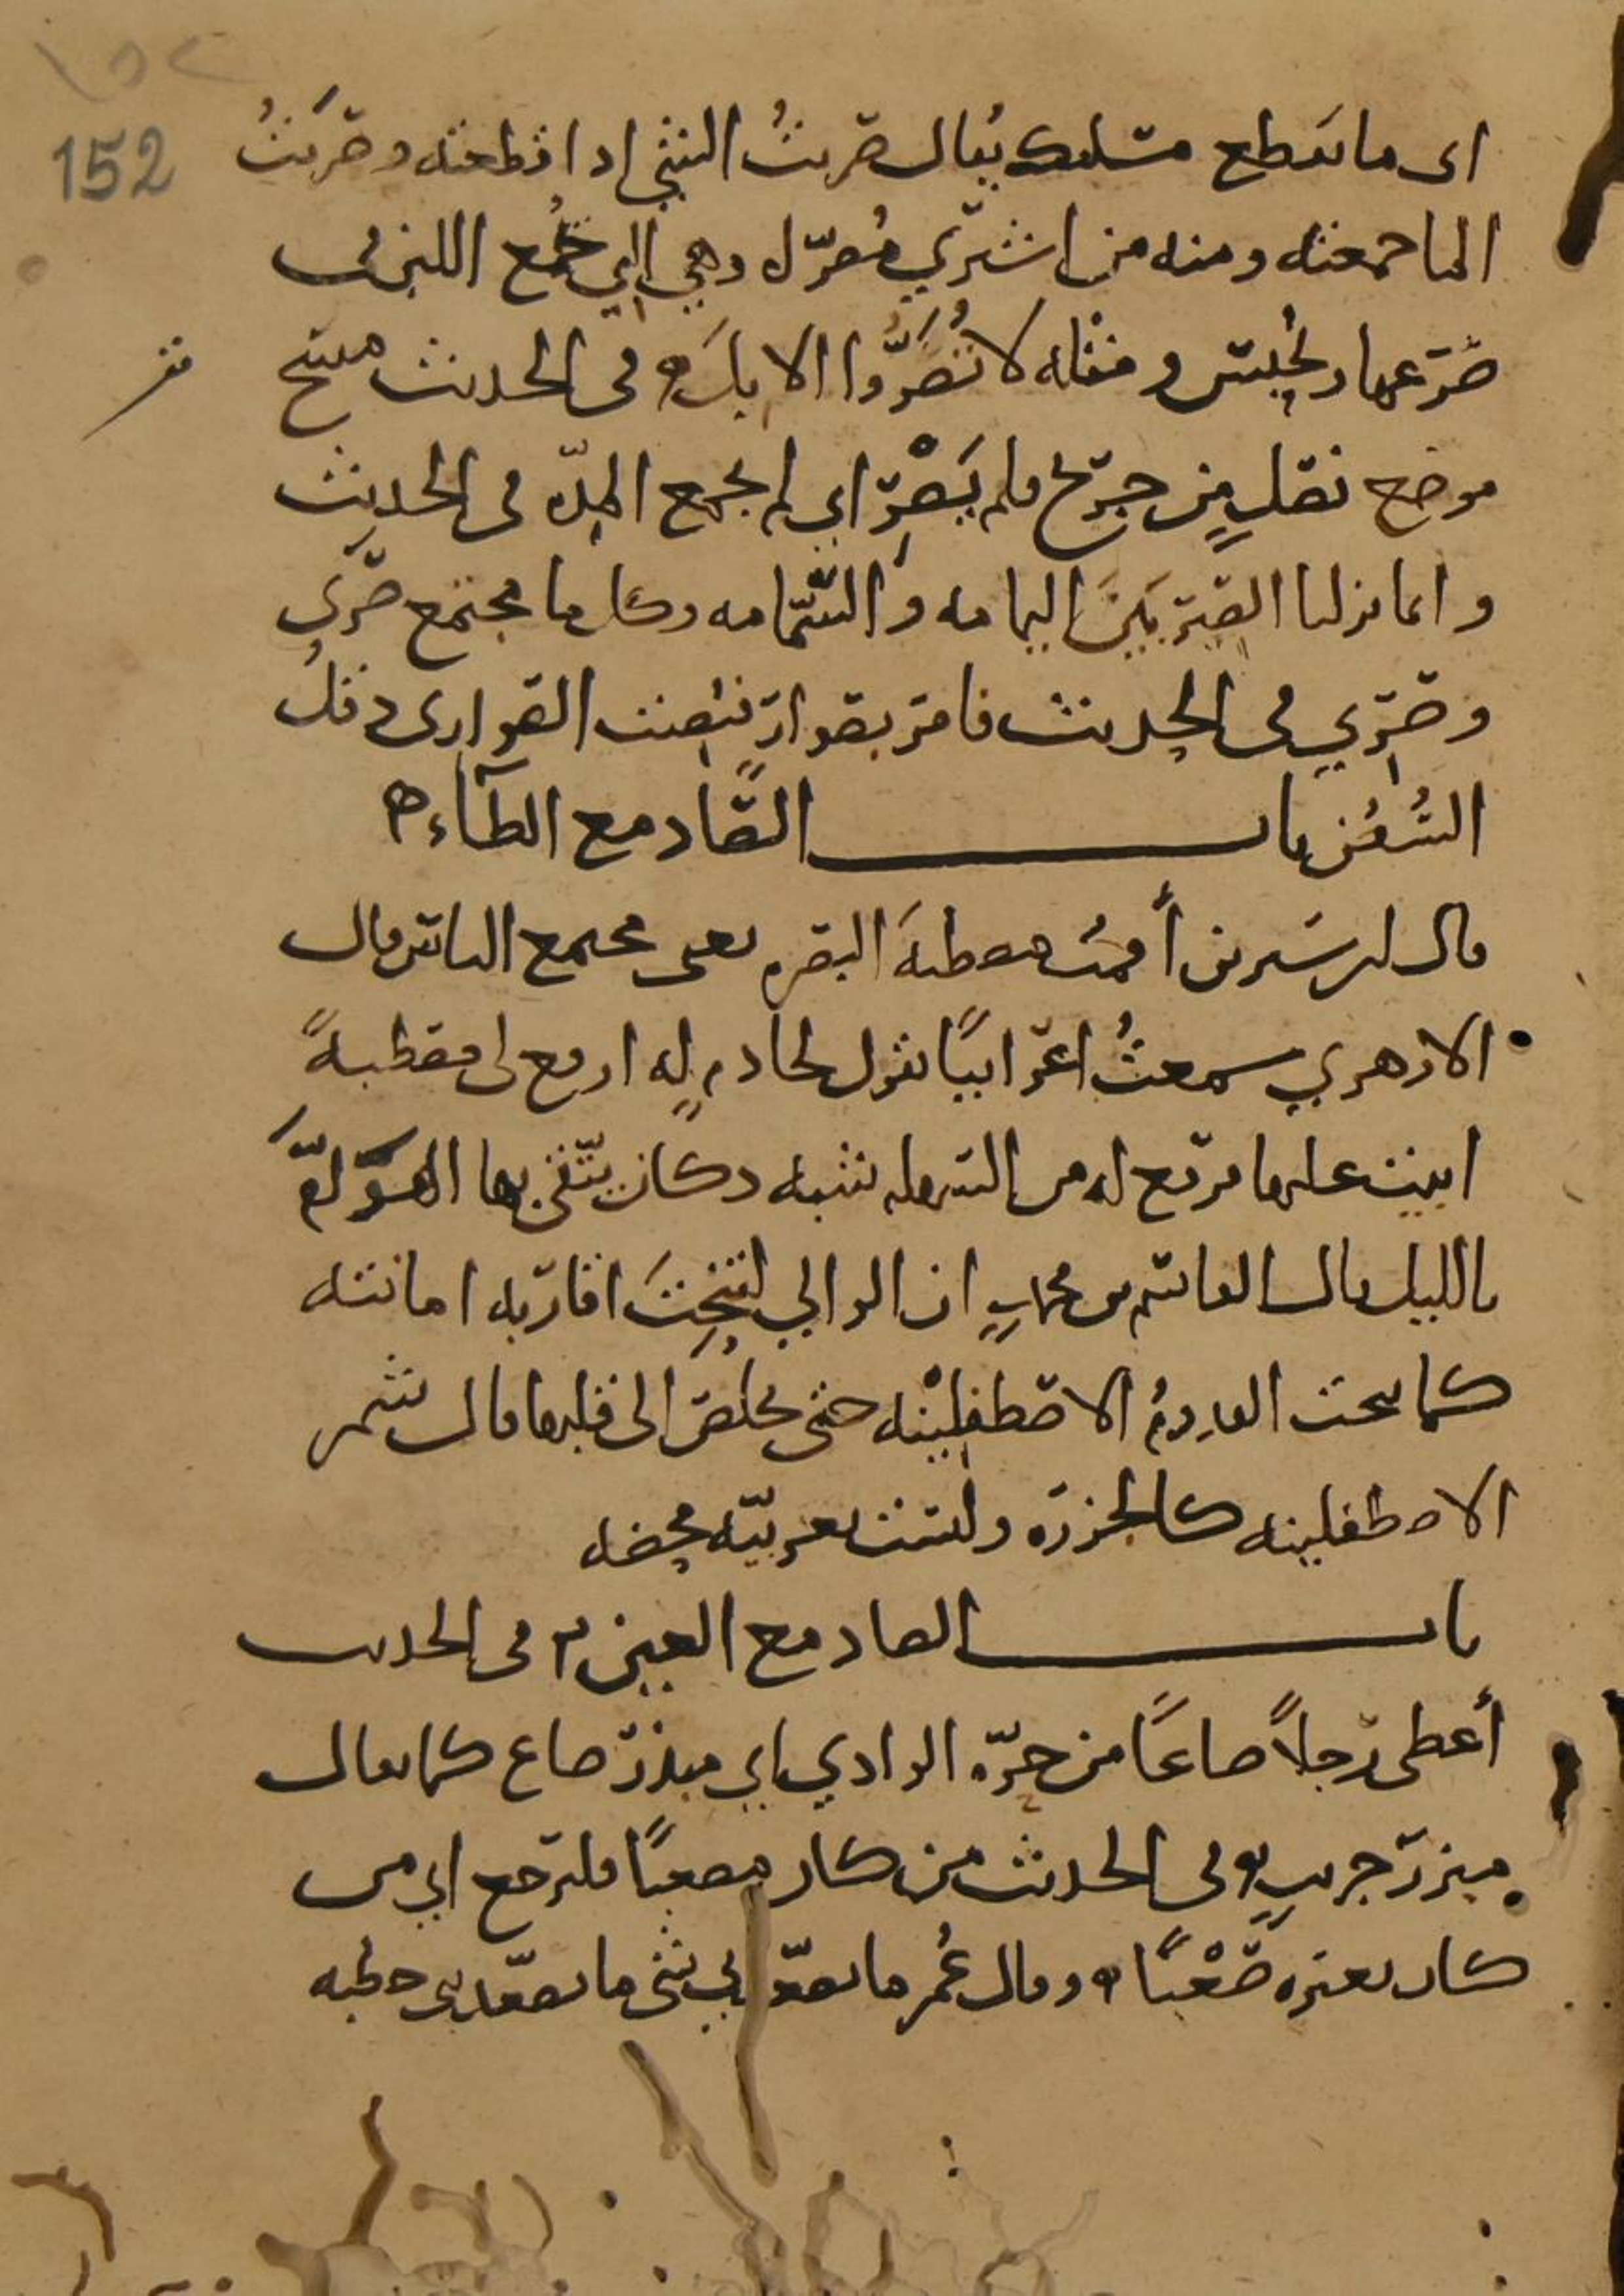 ١٥٢
152
اى ما يقطع مسلتك يُقال صَرَيتُ الشيْ اذا قطعته وصَرَيتُ
الما جمعته ومنه من اشتري مُصرّاه وهي التي جُمع اللبن في
ضَرعها وحُبِس ومثله لا تُصَرُّوا الابلَ ه وفى الحديث مسح
موضع نصلٍ من جرح فلم يَصْرِ اي لم يجمع المِدّه فى الحديث
وانما نزلنا الصِيرَ يَينَ اليمامه والسَّمامه وكل ما مجتمع صَرًى
وصِرًي فى الحديث فامر بصوارٍ فنصبت الصوارى دقلُ
السُفُن باب الصَّاد مع الطآءِ ه
قال ابن سيرين أقمتُ مصطبهَ البصره يعنى مجتمع الناس وقال
الازهري سمعتُ اعرابيًا يقول لخادمٍ له ارفع لى مصطبهً
ابيت عليها فرفع له من السهله شبه دكان يتقى بها الهوَآمَّ
بالليل قال القاسم بن محمدٍ ان الوالي لتنحِتُ اقاربه امانته
كما تنحت القدومُ الاصطفلِيْنه حتى تخلص الى قلبها قال شمر
الاصطفلينه كالجزره وليست بعربيّه محضه
باب الصاد مع العين ه فى الحديث
أعطى رجلاً صاعًا من حرّه الوادي اي مبذر صاع كما يقال
مبزر جريبٍ ه وفى الحديث من كان مصعبًا فليرجع اي من
كان بعيره صَعْبًا ه وقال عُمر ما تصعّد لي شى ما تصعّدنى خطبه